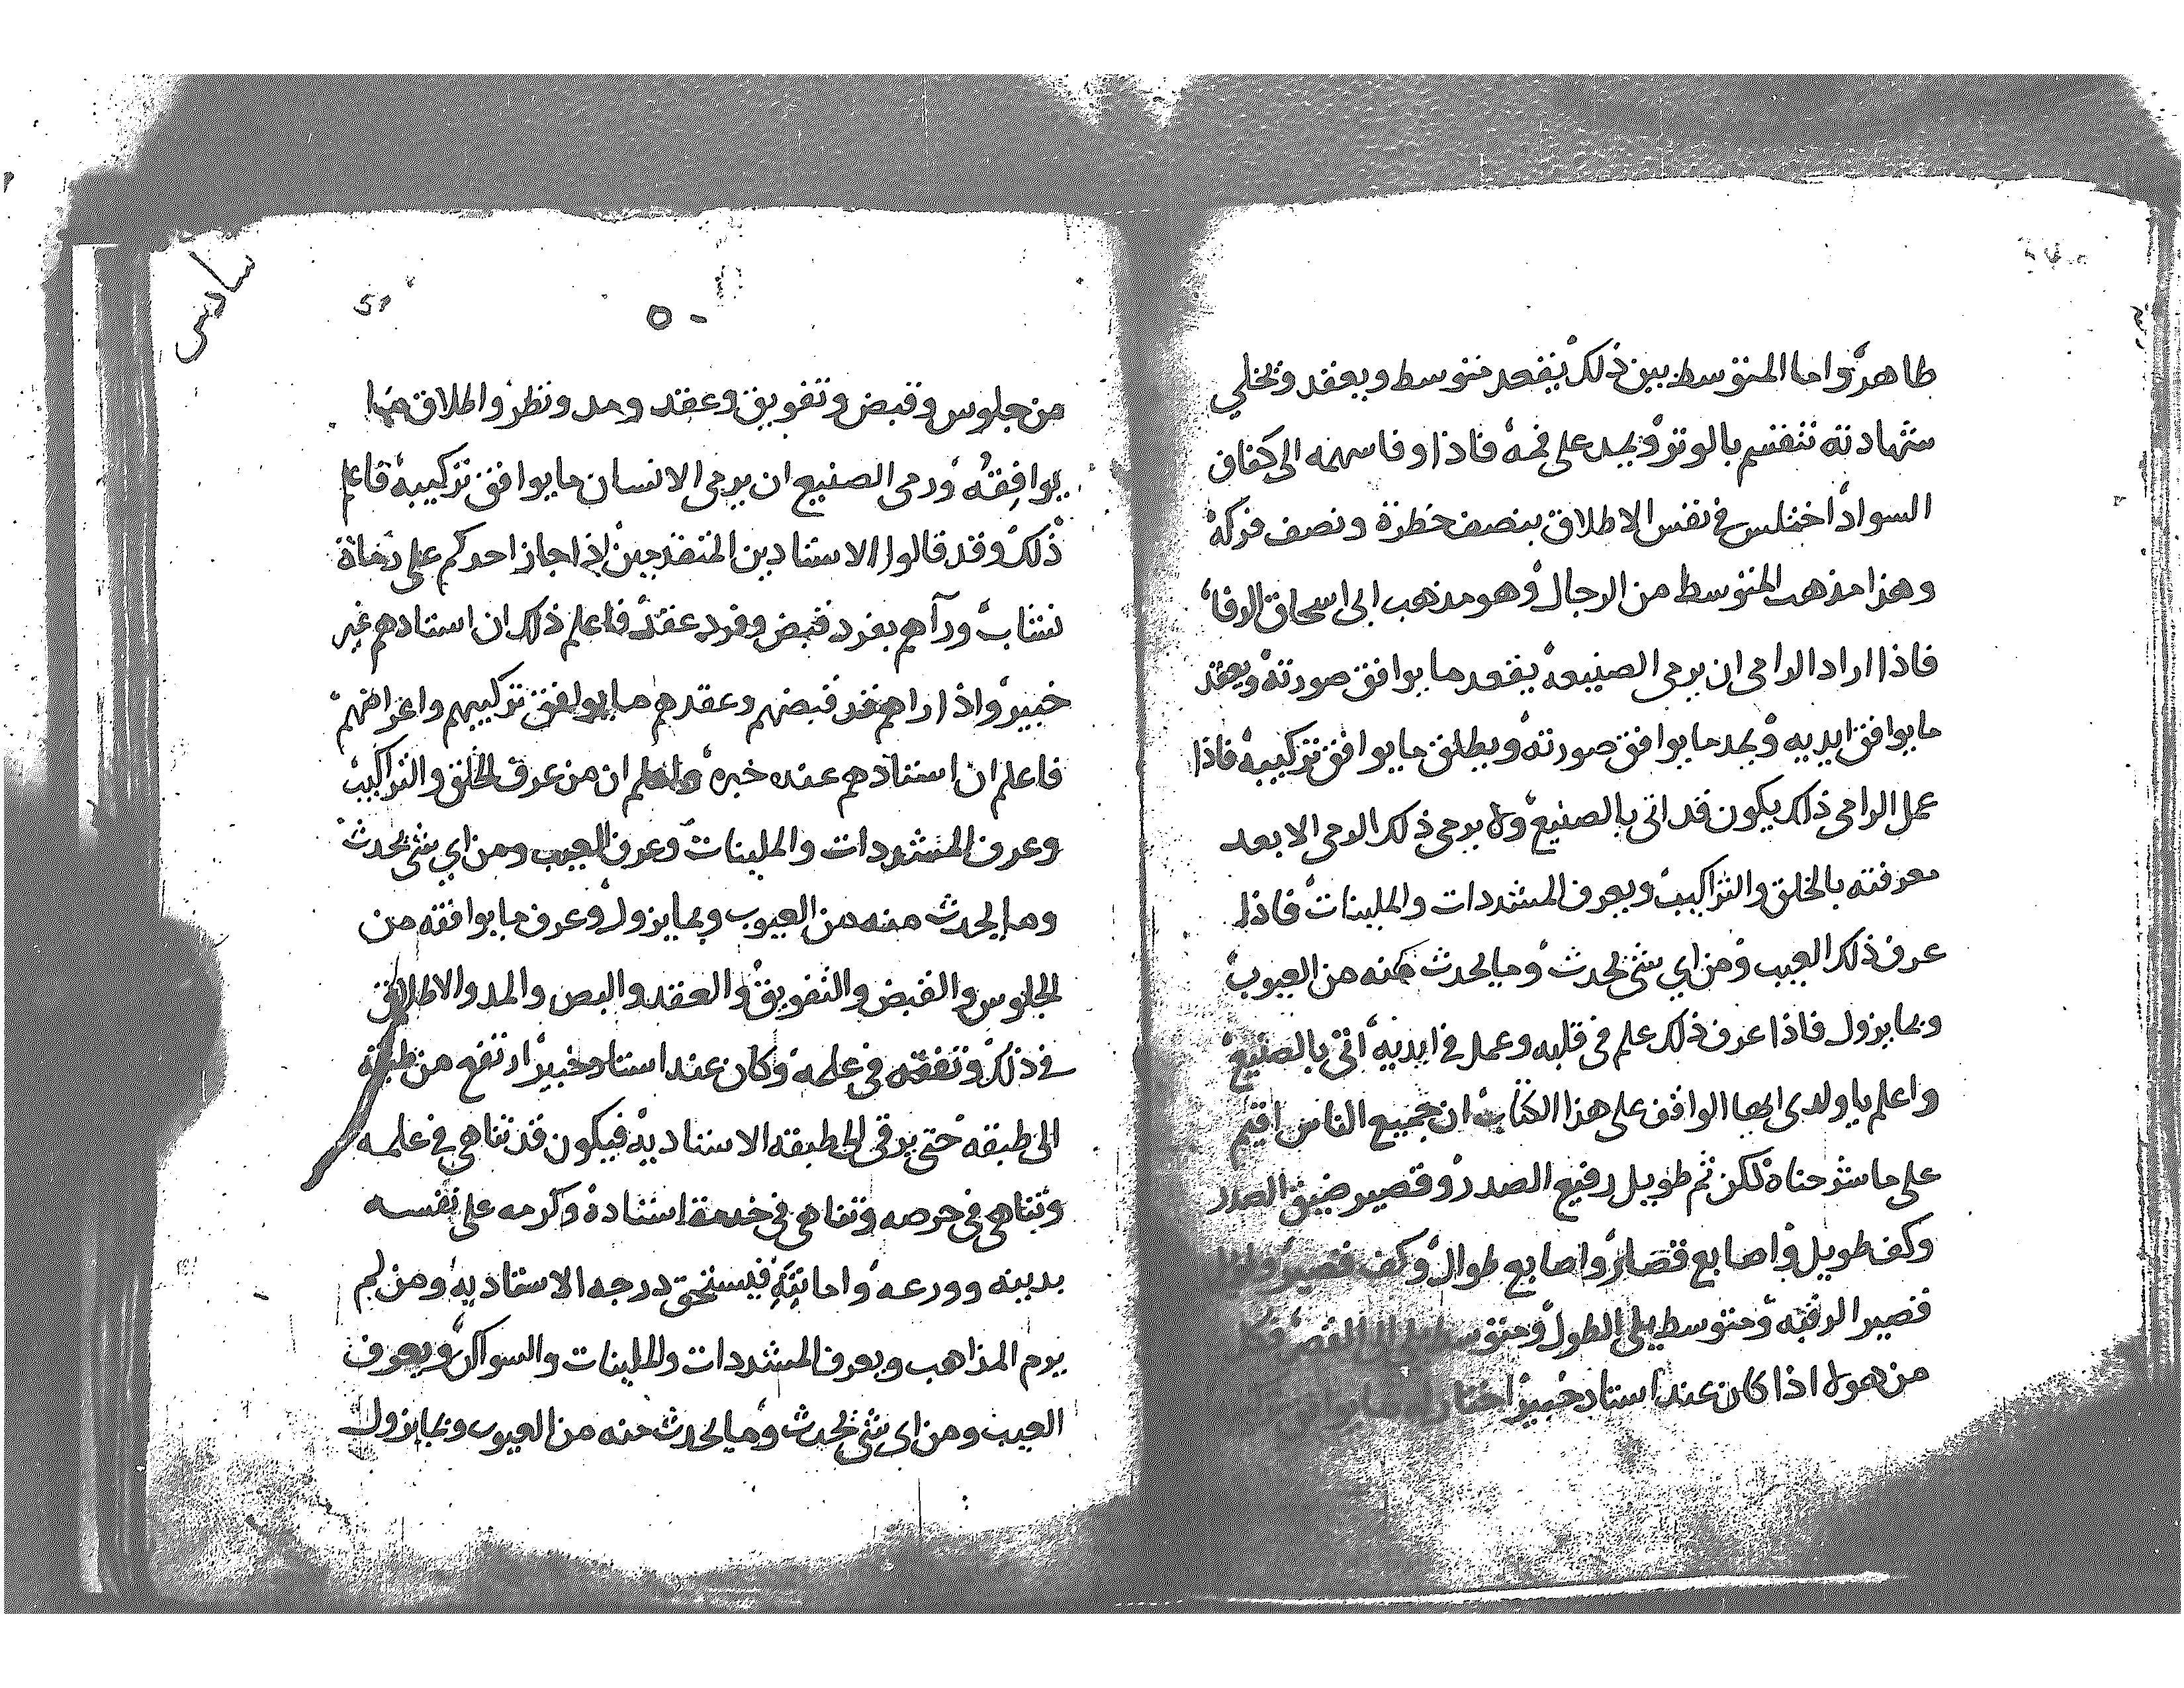 طاهر واما المتوسط بين ذلك يقعد متوسط ويعقد ويخلي
شهادته تنقسم بالوتر ويمد على فمه فاذا وفا سهمه الى
السواد اختلس في نفس الاطلاق بنصف خطرة ونصف فركه
وهذا مذهب المتوسط من الرجال وهو مذهب ابى اسحاق الرفا
فاذا اراد الرامى ان يرمى الصنيعه يقعد ما يوافق صورته ويعقد
ما يوافق ايديه ويمد ما يوافق صورته ويطلق ما يوافق تركيبه فاذا
عمل الرامى ذلك يكون قد اتى بالصنيع ولا يرمى ذلك الرمى الا بعد
معرفته بالخلق والتراكيب ويعرف المشددات والملينات فاذا
عرف ذلك العيب ومن اي شى يحدث وما يحدث منه من العيوب
وبما يزول فاذا عرف ذلك علم في قلبه وعمل في ايديه اتى بالصنيع
واعلم ياولدى ايها الواقف على هذا الكتاب ان جميع الناس اقيم
على ما شرحناه لكن ثم طويل رفيع الصدر وقصير ضيق الصدر
وكف طويل واصابع قصار واصابع طوال وكف قصير
قصير الرقبه ومتوسط يلى الطول ومتوسط
من هولا اذا كان عند استاد خبير اختار له
سادس
٥٠
من جلوس وقبض وتفويق وعقد ومد ونظر واطلاق
يوافقه ورمى الصنيع ان يرمى الانسان ما يوافق تركيبه فاعلم
ذلك وقد قالوا الاستادين المتقدمين اذا جاز احدكم على رماة
نشاب ورآهم بفرد قبض وفرد عقد فاعلم ذلك ان استادهم غير
خبير واذا راهم قد قبضهم وعقدهم ما يوافق تركيبهم واغراضهم
فاعلم ان استادهم عنده خبره واعلم ان من عرف الخلق والتراكيب
وعرف المشددات والملينات وعرف العيب ومن اي شى يحدث
وما يحدث منه من العيوب وبما يزول وعرف ما يوافقه من
الجلوس والقبض والتفويق والعقد والبص والمد والاطلاق
في ذلك وتفقه في علمه وكان عند استاد خبير ارتفع من طبقة
الى طبقه حتى يرقى الى طبقه الاستاديه فيكون قد تناهى في علمه
وتناهى في حرصه وتناهى في خدمة استاده وكرمه على نفسه
بدينه وورعه وامانته فيستحق درجه الاستاديه ومن لم
يرم المذاهب ويعرف المشددات والملينات والسواكن ويعرف
العيب ومن اي شى يحدث وما يحدث منه من العيوب وبما يزول